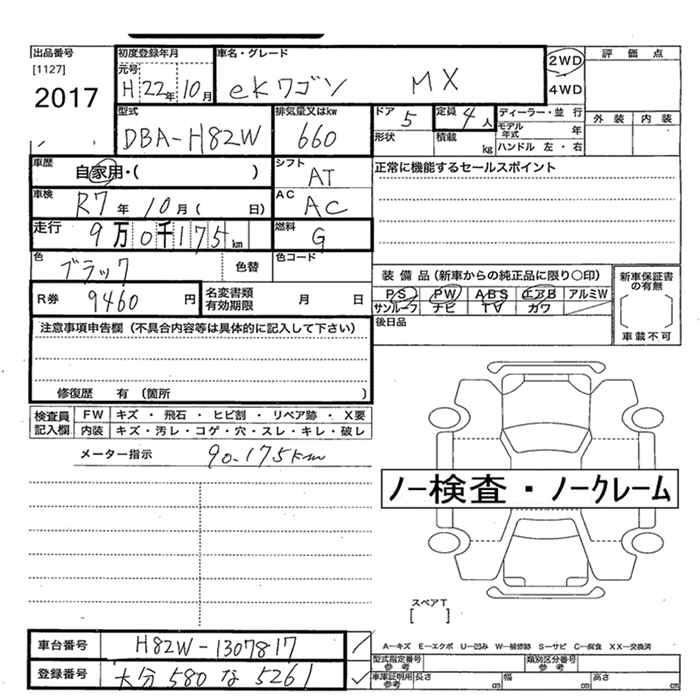 出品番号
[1127]
2017
初度登録年月
元号
H 22年 10月
車名・グレード
eKワゴン MX
2WD
4WD
評価点
外装 内装
型式
DBA-H82W
排気量又はkw
660
ドア
5
定員
4人
形状
積載
kg
ディーラー・並行
モデル年式
年
ハンドル 左・右
車歴
自家用・( )
シフト
AT
正常に機能するセールスポイント
車検
R7年 10月( 日)
AC
AC
走行
9万0千175km
燃料
G
色
ブラック
色替
色コード
装備品(新車からの純正品に限り○印)
PS PW ABS エアB アルミW
サンルーフ ナビ TV カワ
後日品
新車保証書の有無
車載不可
R券
9460円
名変書類有効期限
月 日
注意事項申告欄(不具合内容等は具体的に記入して下さい)
修復歴 有(箇所 )
検査員記入欄
FW キズ・飛石・ヒビ割・リペア跡・X要
内装 キズ・汚レ・コゲ・穴・スレ・キレ・破レ
メーター指示
90-175km
ノー検査・ノークレーム
スペアT
[ ]
車台番号
H82W-1307817
登録番号
大分 580 な 5261
A-キズ E-エクボ U-凹み W-補修跡 S-サビ C-腐食 XX-交換済
型式指定番号 参考
類別区分番号 参考
車庫証明用 参考
長さ cm 幅 cm 高さ cm